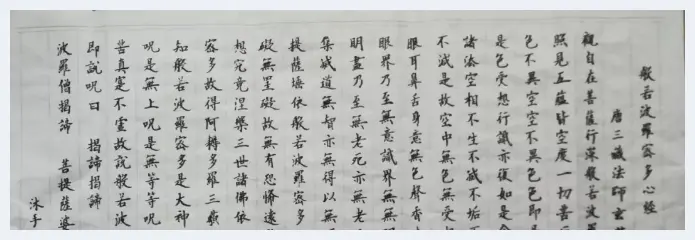 般若波羅密多心經
唐三藏法師玄
觀自在菩薩行深般若波羅
照見五蘊皆空度一切苦
色不異空空不異色色即是
是色受想行識亦復如是舍
諸法空相不生不滅不垢不
不減是故空中無色無受
眼耳鼻舌身意無色聲香
眼界乃至無意識界無無
明盡乃至無老死亦無老
集滅道無智亦無得以無
提薩埵依般若波羅密多
礙無罣礙故無有恐怖遠
想究竟涅槃三世諸佛依
密多故得阿耨多羅三藐
知般若波羅密多是大神
呪是無上呪是無等等呪
苦真實不虛故說般若波
即說呪曰 揭諦揭諦
波羅僧揭諦 菩提薩婆
沐手